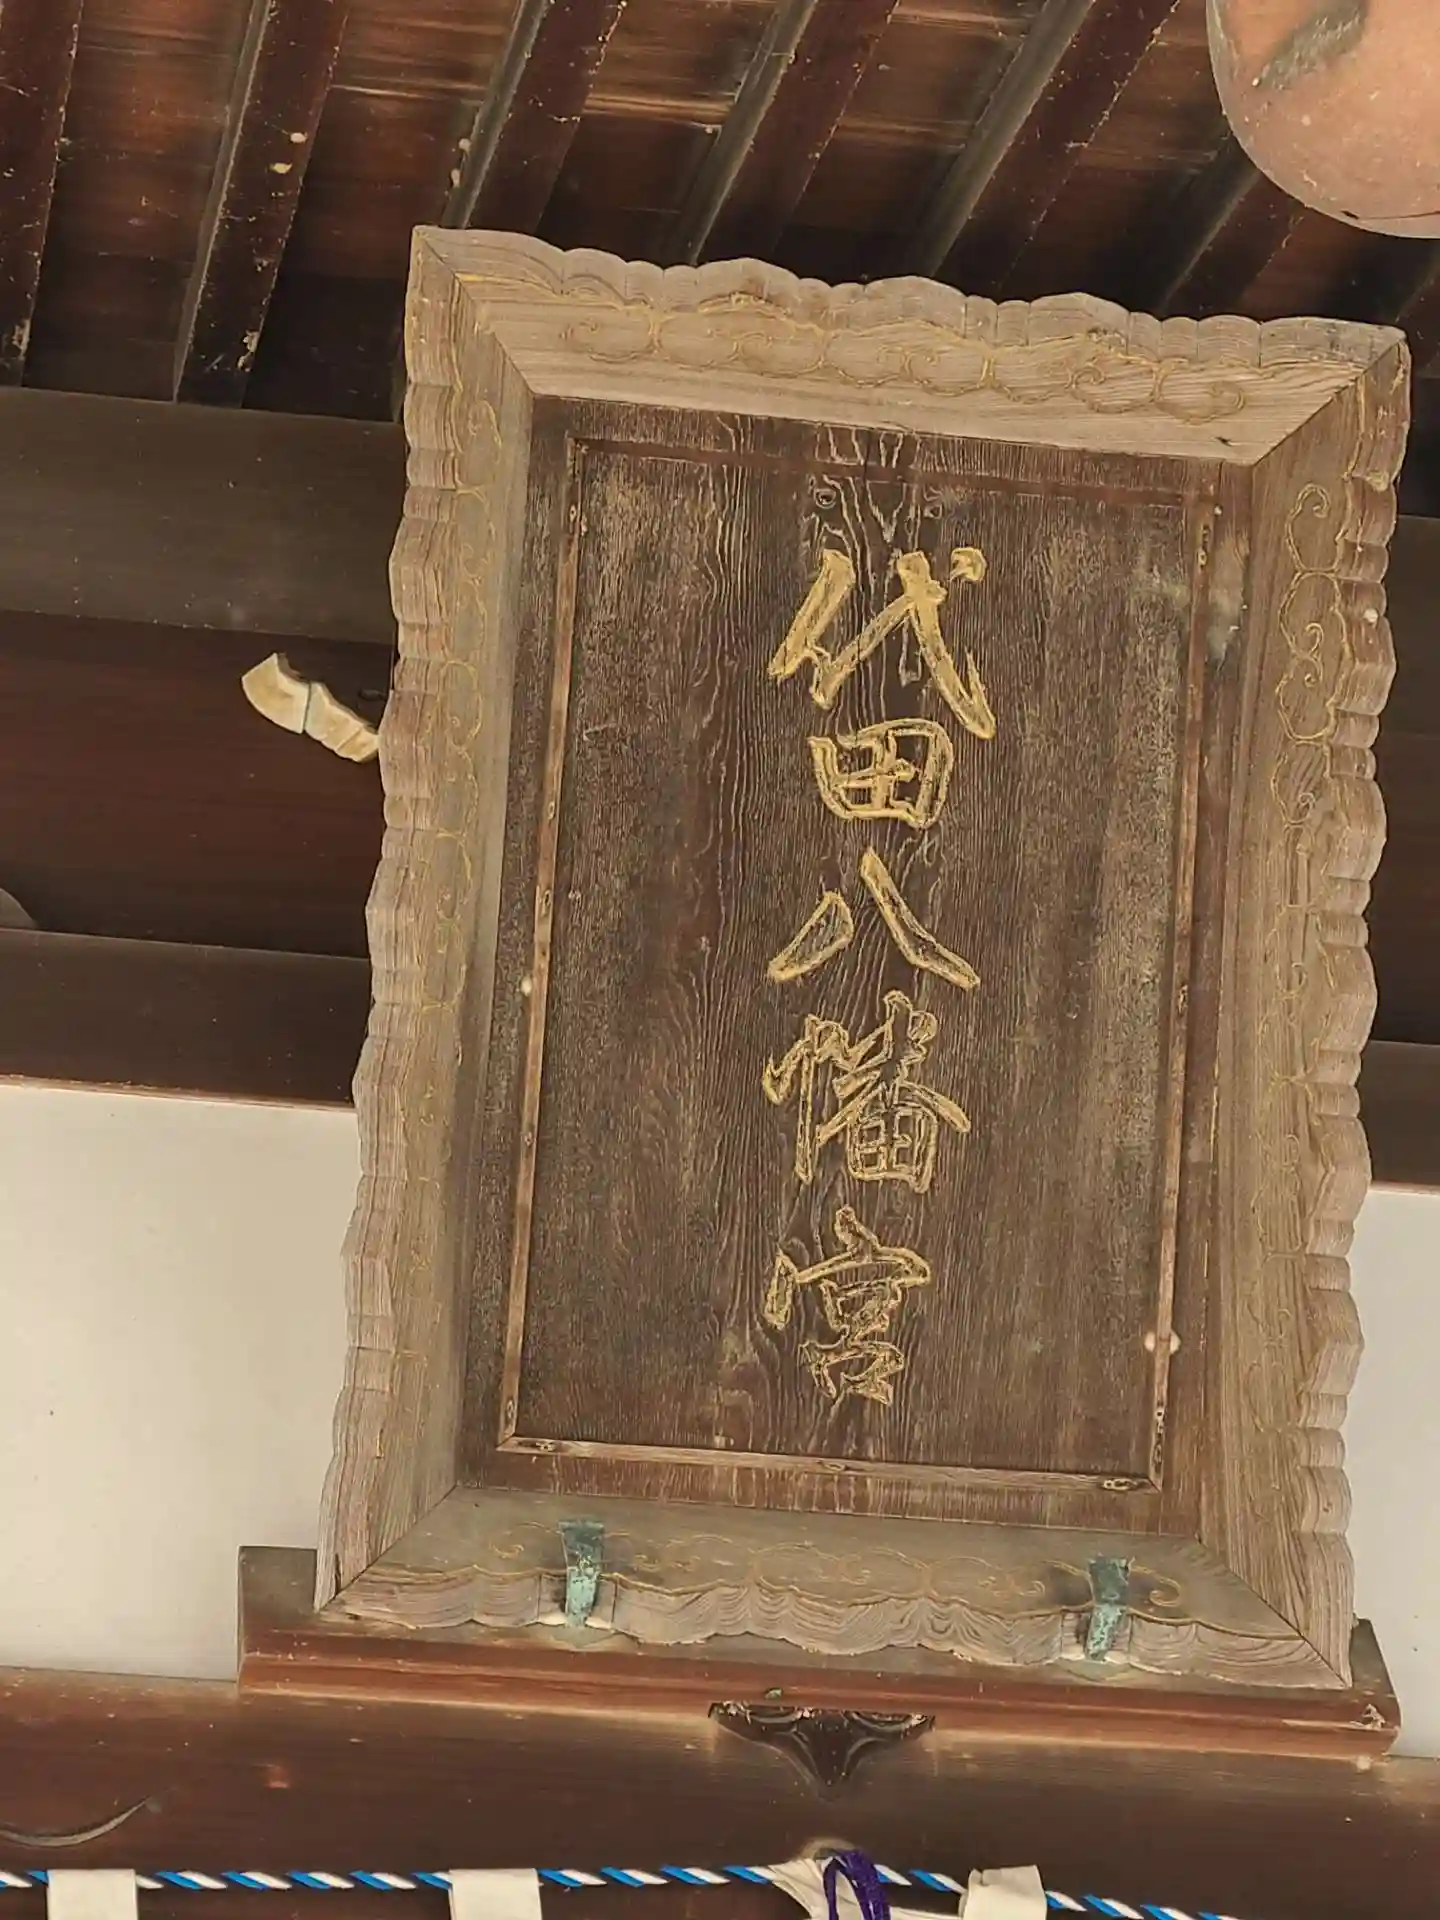 代田八幡宮